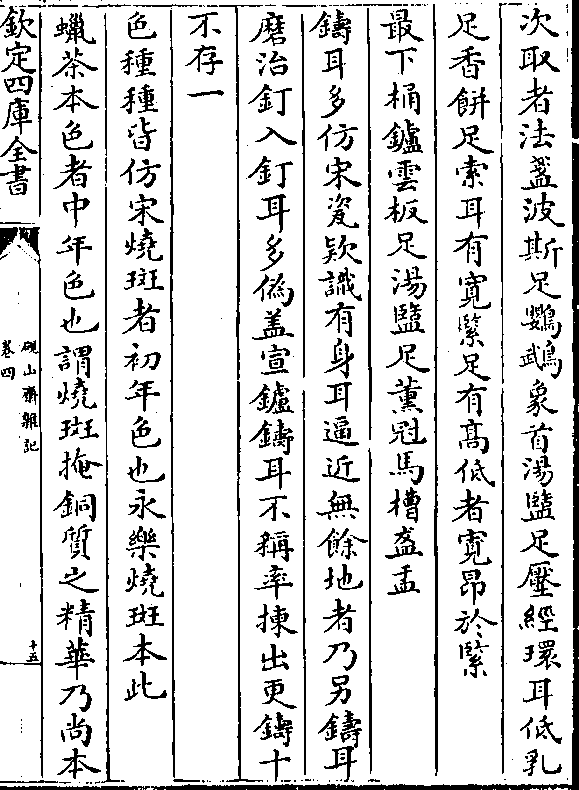 次取者法盞波斯足鸚鵡象首湯盬足壓經環耳低乳
足香餅足索耳有寛緊足有髙低者寛昻於緊
最下桶鑪雲板足湯盬足薰冠馬槽盋盂
鑄耳多仿宋瓷欵識有身耳逼近無餘地者乃另鑄耳
磨治釘入釘耳多偽盖宣鑪鑄耳不稱率揀出更鑄十
不存一
色種種皆仿宋燒斑者初年色也永樂燒斑本此
蠟茶本色者中年色也謂燒斑掩銅質之精華乃尚本
欽定四庫全書
硯山齋雜記
卷四
十五